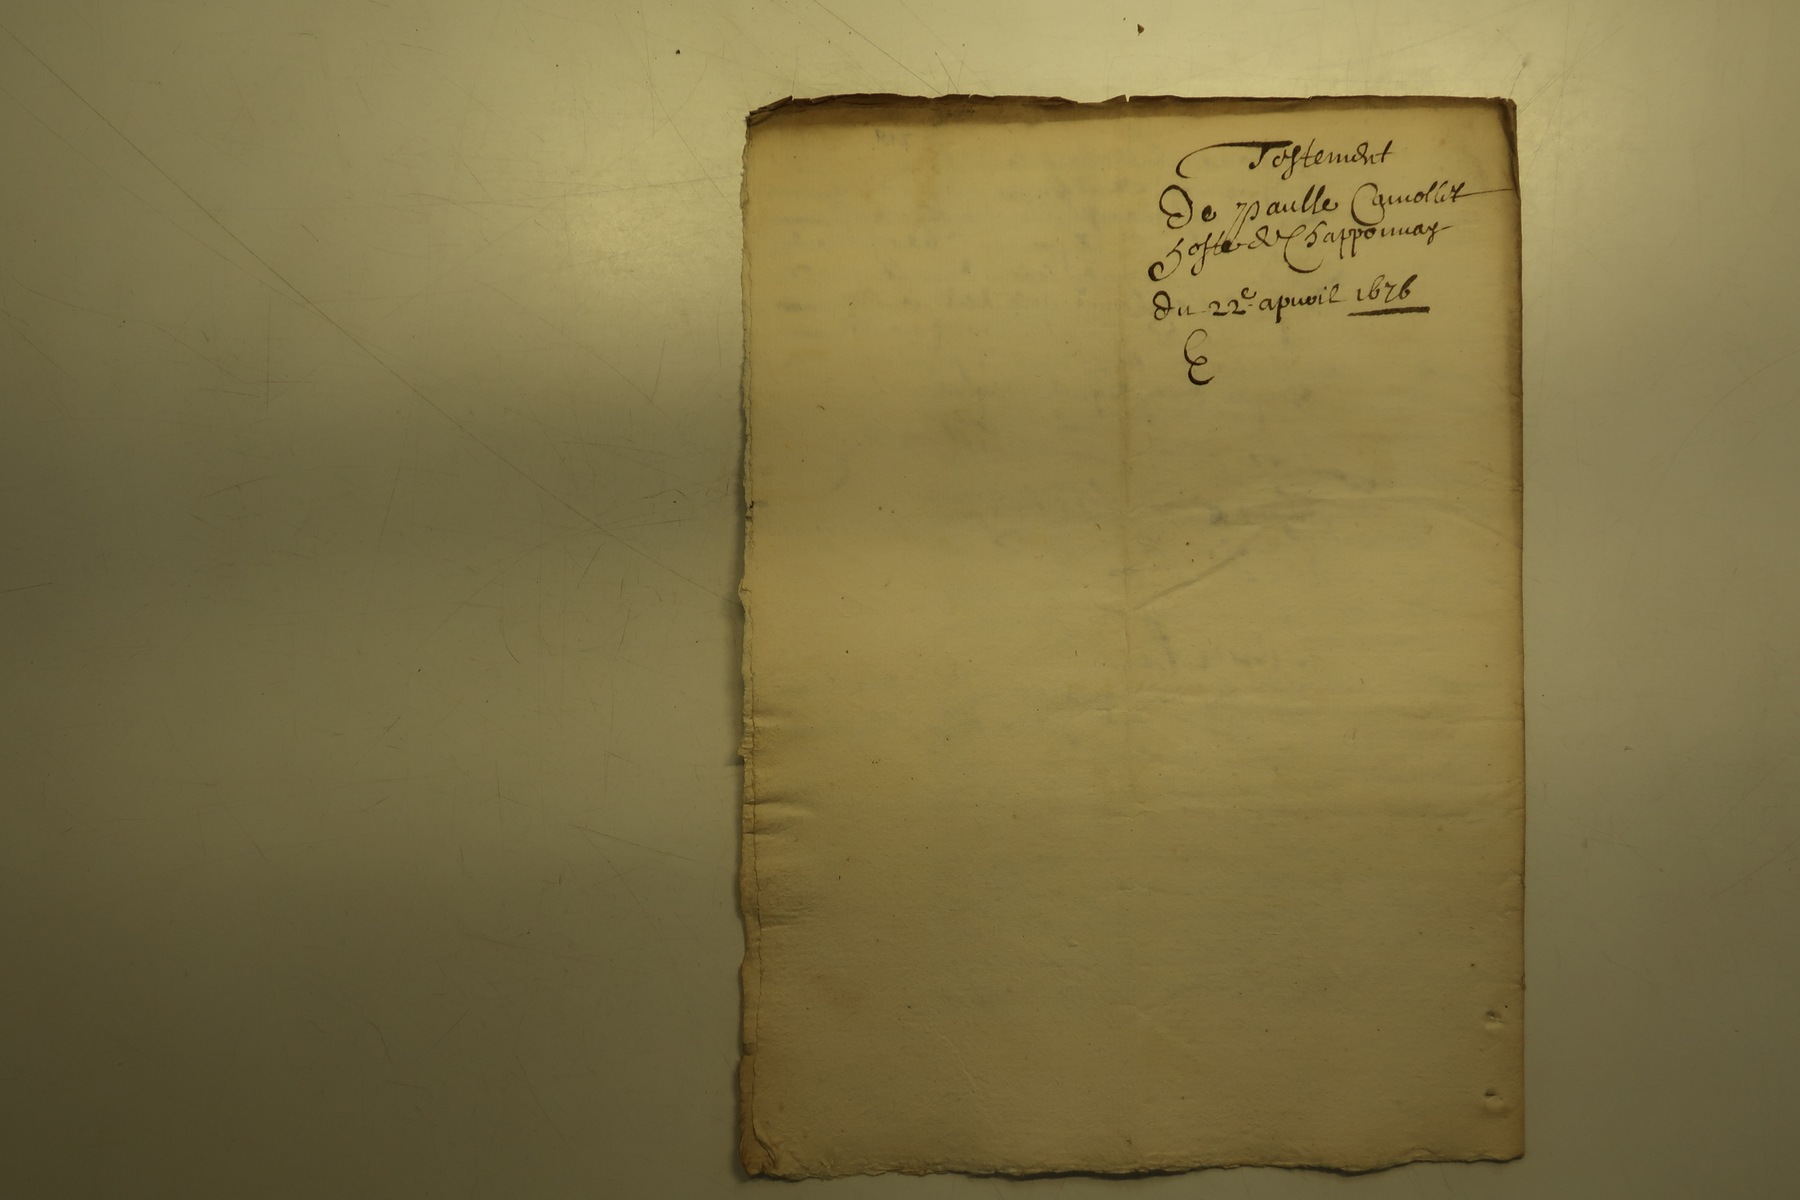 Testement
De paulle Camollet
hoste de Chapponnay
du 22e apvril 1676
E